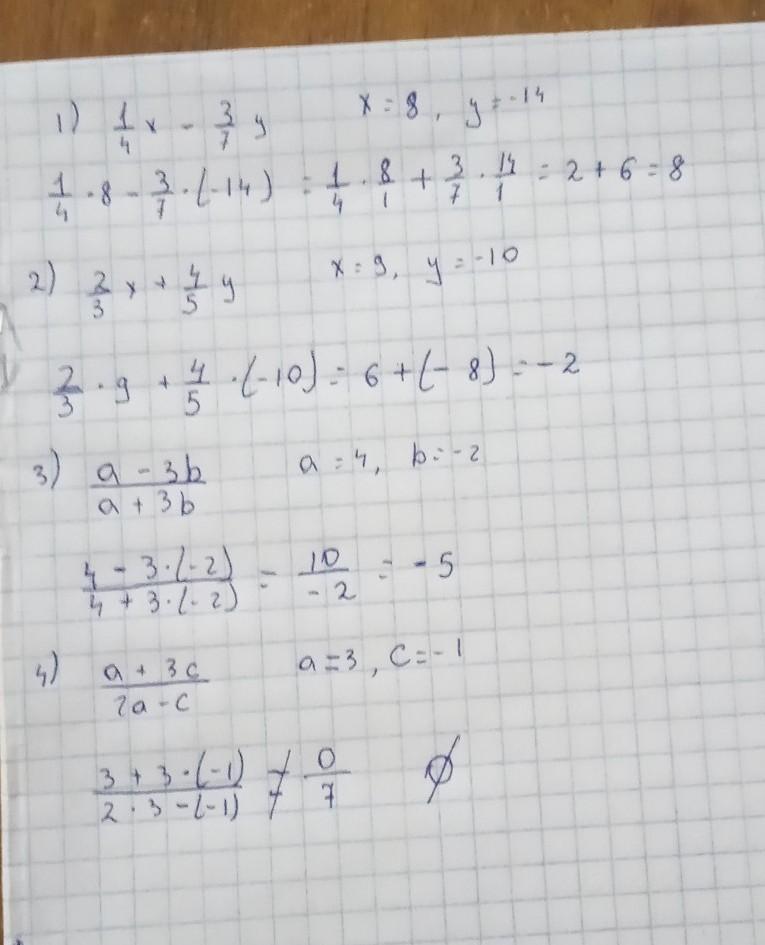 1) 1/4 x - 3/7 y x = 8, y = -14
1/4 · 8 - 3/7 · (-14) = 1/4 · 8/1 + 3/7 · 14/1 = 2 + 6 = 8
2) 2/3 x + 4/5 y x = 9, y = -10
2/3 · 9 + 4/5 · (-10) = 6 + (-8) = -2
3) a - 3b / a + 3b a = 4, b = -2
4 - 3·(-2) / 4 + 3·(-2) = 10 / -2 = -5
4) a + 3c / 2a - c a = 3, c = -1
3 + 3·(-1) / 2·3 - (-1) ≠ 0/7 ∅